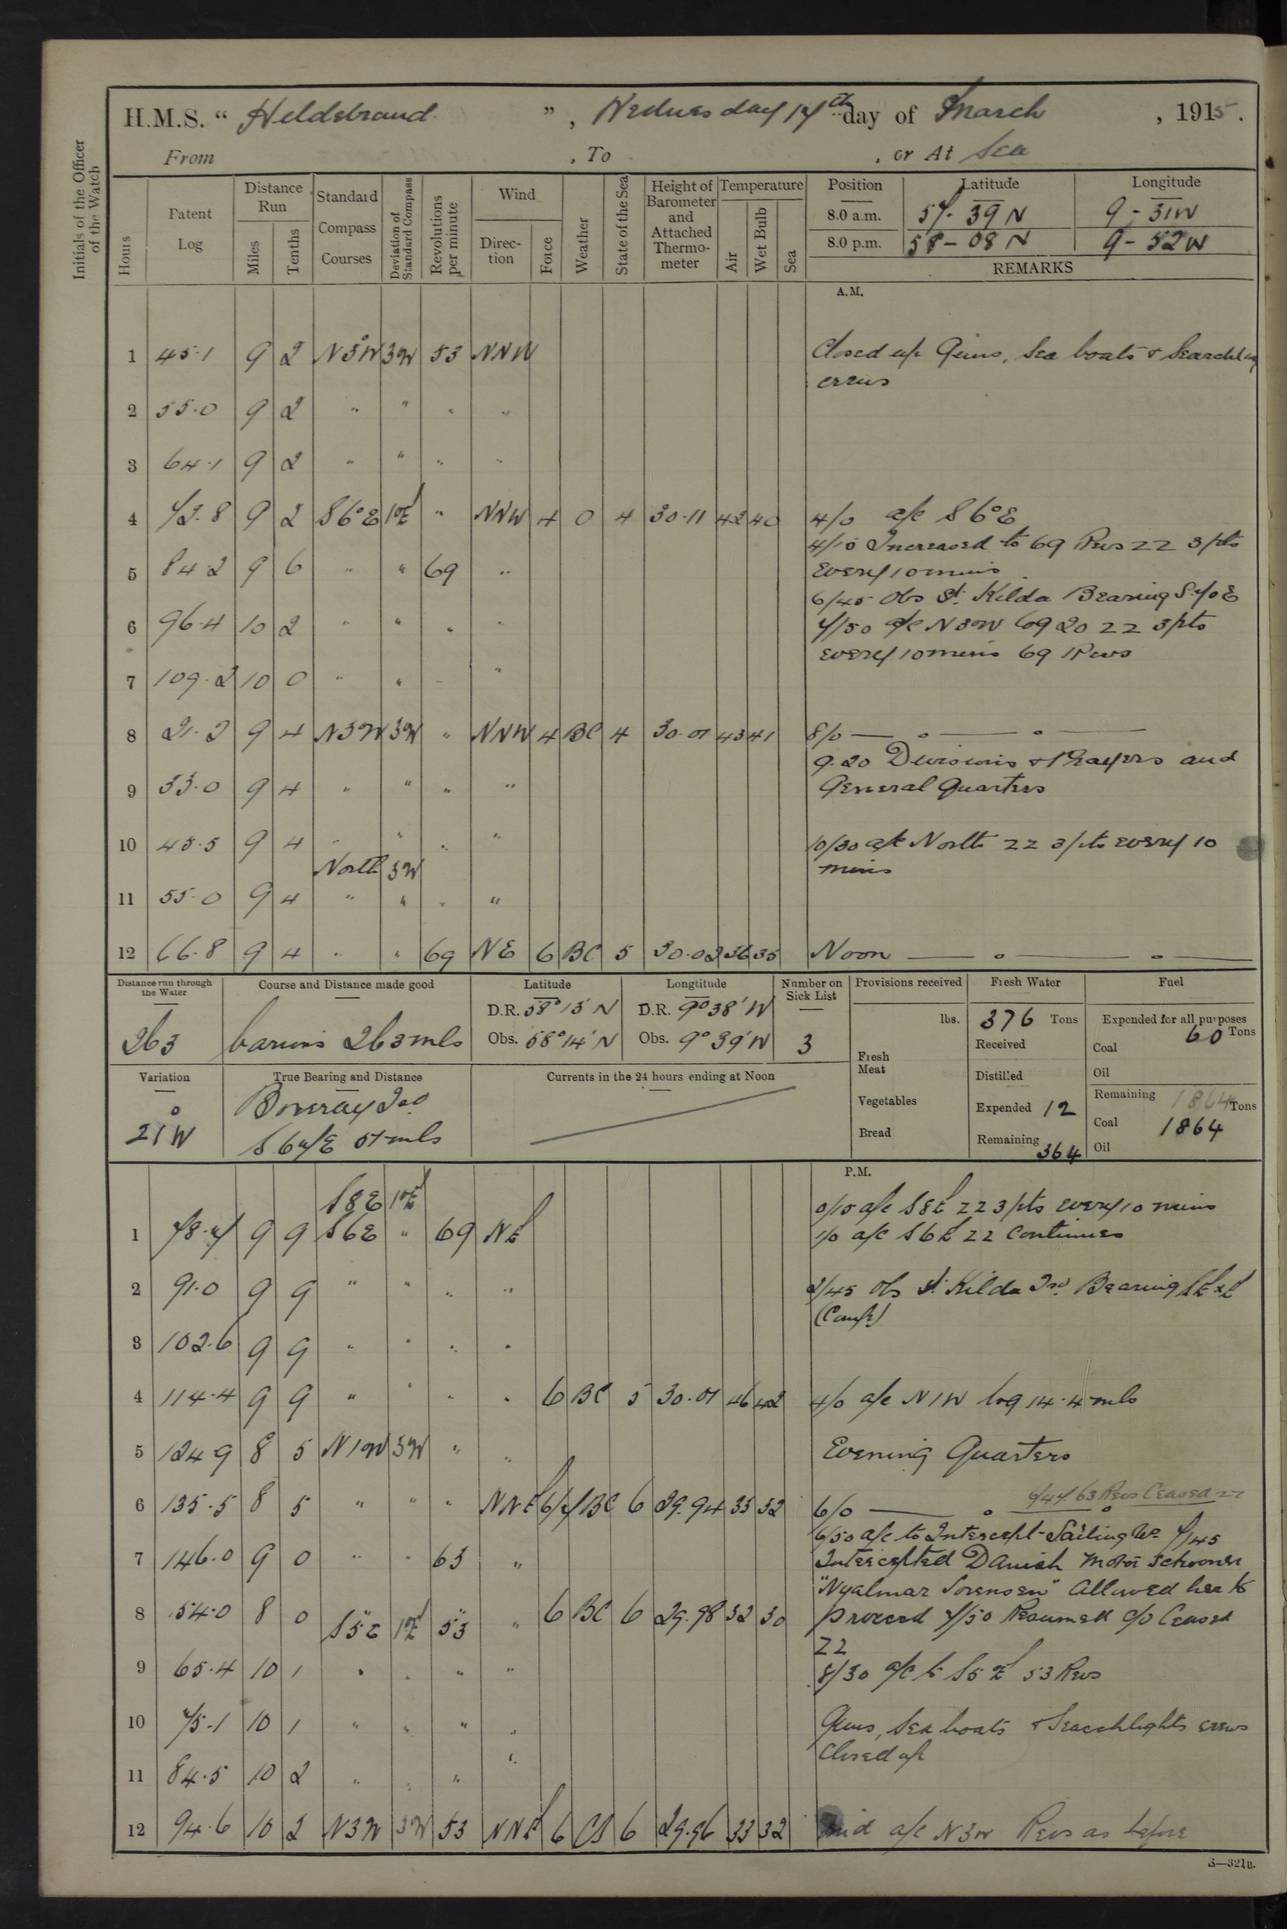 H.M.S. “ Hildebrand ” , Wednesday 17th day of March , 1915 .
From , To , or At Sea
Initials of the Officer of the Watch
Hours
Patent Log
Distance Run
Miles
Tenths
Standard Compass Courses
Deviation of Standard Compass
Revolutions per minute
Wind
Direction
Force
Weather
State of the Sea
Height of Barometer and Attached Thermometer
Temperature
Air
Wet Bulb
Sea
Position Latitude Longitude
8.0 a.m. 57 - 39 N 9 - 31 W
8.0 p.m. 58 - 08 N 9 - 52 W
REMARKS
A.M.
1 45.1 9 2 N3°W 3W 53 NNW Closed up Guns, Sea boats & Searchlight
crews
2 55.0 9 2 " " " "
3 64.1 9 2 " " " "
4 72.8 9 2 S6°E 1°E " NNW 4 O 4 30.11 42 40 4/0 a/c S6°E
4/10 Increased to 69 Revs ZZ 3 pts
5 84.2 9 6 " " 69 " Every 10 mins
6/45 Obs St. Kilda Bearing S.70E
6 96.4 10 2 " " " " 7/50 a/c N3W log 20 ZZ 3 pts
every 10 mins 69 Revs
7 109.2 10 0 " " " "
8 21.2 9 4 N3W 3W " NNW 4 BC 4 30.01 43 41 8/0 — " — " —
9.20 Divisions & Prayers and
9 33.0 9 4 " " " " General Quarters
10 45.5 9 4 " " " " 10/30 a/c North ZZ 3 pts every 10
North 3W mins
11 55.0 9 4 " " " "
12 66.8 9 4 " " 69 NE 6 BC 5 30.02 36 35 Noon — " — " —
Distance run through the Water
263
Course and Distance made good
various 263 mls
Latitude
D.R. 58° 15' N
Obs. 58° 14' N
Longtitude
D.R. 9° 38' W
Obs. 9° 39' W
Number on Sick List
3
Provisions received
lbs.
Fresh Meat
Vegetables
Bread
Fresh Water
376 Tons
Received
Distilled
Expended 12
Remaining 364
Fuel
Expended for all purposes
Coal 60 Tons
Oil
Remaining 1864 Tons
Coal 1864
Oil
Variation
21°W
True Bearing and Distance
Boreray Isd
mls
Currents in the 24 hours ending at Noon
P.M.
S8E 1°E 0/10 a/c S8E ZZ 3 pts every 10 mins
1 78.7 9 9 S6E " 69 NE 1/0 a/c S6E ZZ continues
2 91.0 9 9 " " " " 2/45 Obs St. Kilda Isd. Bearing SExE
(Comp)
3 102.6 9 9 " " " "
4 114.4 9 9 " " " " 6 BC 5 30.01 46 42 4/0 a/c N1W log 14.4 mls
5 124.9 8 5 N1W 3W " " Evening Quarters
6 135.5 8 5 " " " NNE 6/7 BC 6 29.94 35 32 6/0 — " — " 6/47 63 Revs Ceased ZZ
6/50 a/c to Intercept Sailing Ve. 7/45
7 146.0 9 0 " " 63 " Intercepted Danish Motor Schooner
"Nyalmar Sorensen" Allowed her to
8 54.0 8 0 " " " " 6 BC 6 29.98 32 30 proceed 7/50 Resumed c/o Ceased
S5E 1°E 53 ZZ
9 65.4 10 1 " " " " 8/30 a/c to S5E 53 Revs
10 75.1 10 1 " " " " Guns, Sea boats & Searchlights crews
Closed up
11 84.5 10 2 " " " "
12 94.6 10 2 N3W 3W 53 NNE 6 CS 6 29.96 33 32 Mid a/c N3W Revs as before
S—321B.